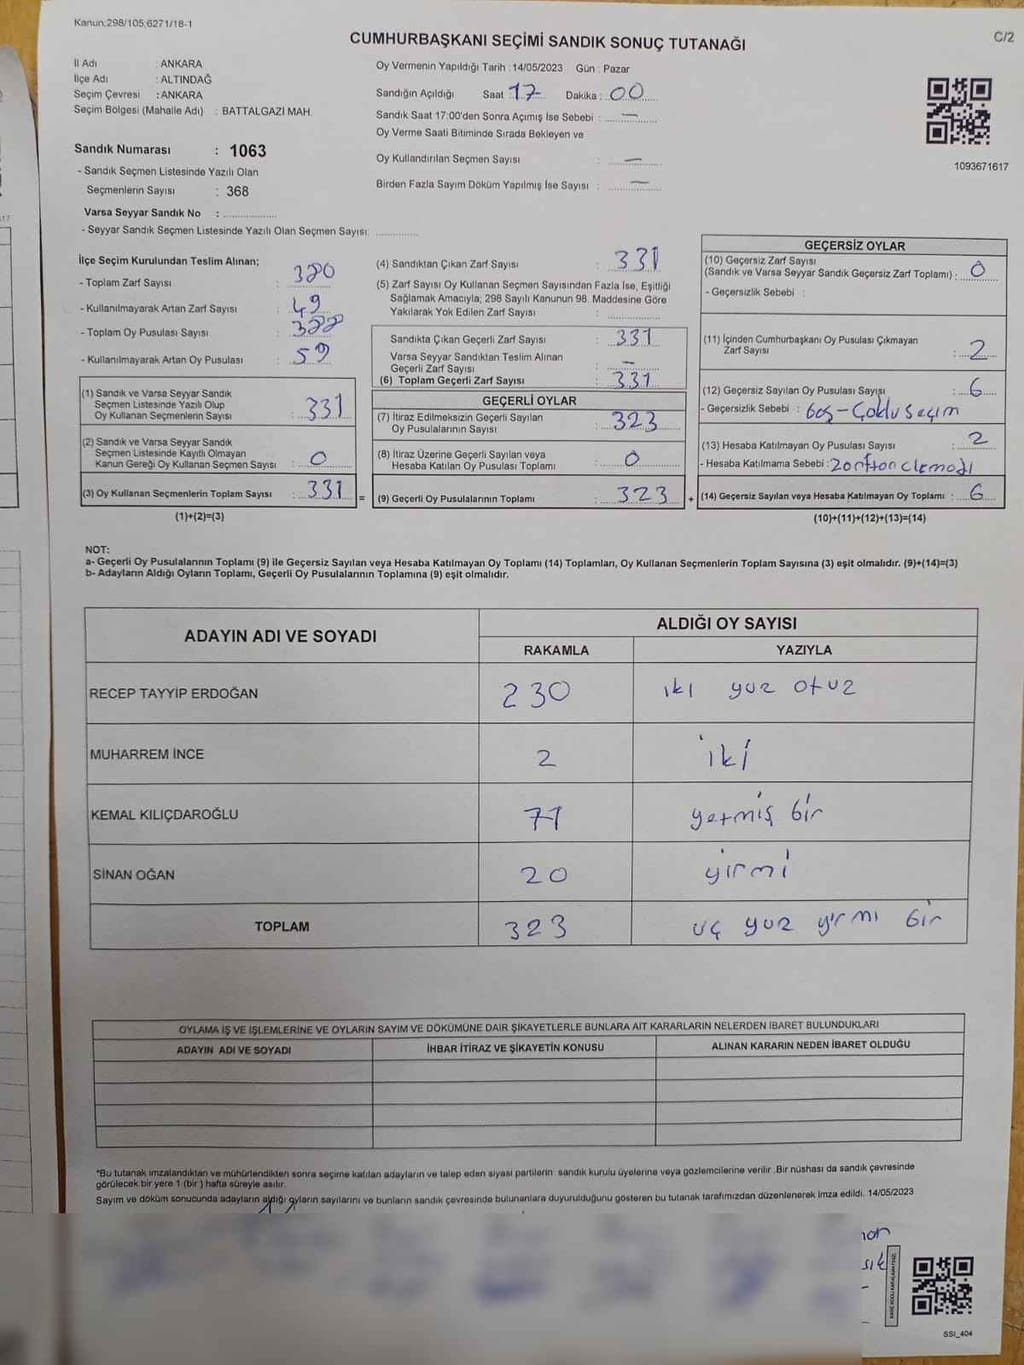 Kanun:298/105,6271/18-1
C/2
CUMHURBAŞKANI SEÇİMİ SANDIK SONUÇ TUTANAĞI
İl Adı : ANKARA
İlçe Adı : ALTINDAĞ
Seçim Çevresi : ANKARA
Seçim Bölgesi (Mahalle Adı) : BATTALGAZİ MAH.
Sandık Numarası : 1063
- Sandık Seçmen Listesinde Yazılı Olan
Seçmenlerin Sayısı : 368
Varsa Seyyar Sandık No :
- Seyyar Sandık Seçmen Listesinde Yazılı Olan Seçmen Sayısı:
Oy Vermenin Yapıldığı Tarih : 14/05/2023 Gün : Pazar
Sandığın Açıldığı Saat : 17 Dakika : 00
Sandık Saat 17:00'den Sonra Açımış İse Sebebi : —
Oy Verme Saati Bitiminde Sırada Bekleyen ve
Oy Kullandırılan Seçmen Sayısı : —
Birden Fazla Sayım Döküm Yapılmış İse Sayısı : —
1093671617
İlçe Seçim Kurulundan Teslim Alınan;
- Toplam Zarf Sayısı : 380
- Kullanılmayarak Artan Zarf Sayısı : 49
- Toplam Oy Pusulası Sayısı : 388
- Kullanılmayarak Artan Oy Pusulası : 59
(1) Sandık ve Varsa Seyyar Sandık
Seçmen Listesinde Yazılı Olup
Oy Kullanan Seçmenlerin Sayısı : 331
(2) Sandık ve Varsa Seyyar Sandık
Seçmen Listesinde Kayıtlı Olmayan
Kanun Gereği Oy Kullanan Seçmen Sayısı : 0
(3) Oy Kullanan Seçmenlerin Toplam Sayısı : 331 =
(1)+(2)=(3)
(4) Sandıktan Çıkan Zarf Sayısı : 331
(5) Zarf Sayısı Oy Kullanan Seçmen Sayısından Fazla İse, Eşitliği
Sağlamak Amacıyla; 298 Sayılı Kanunun 98. Maddesine Göre
Yakılarak Yok Edilen Zarf Sayısı :
Sandıkta Çıkan Geçerli Zarf Sayısı : 331
Varsa Seyyar Sandıktan Teslim Alınan
Geçerli Zarf Sayısı : —
(6) Toplam Geçerli Zarf Sayısı : 331
GEÇERLİ OYLAR
(7) İtiraz Edilmeksizin Geçerli Sayılan
Oy Pusulalarının Sayısı : 323
(8) İtiraz Üzerine Geçerli Sayılan veya
Hesaba Katılan Oy Pusulası Toplamı : 0
(9) Geçerli Oy Pusulalarının Toplamı : 323 +
GEÇERSİZ OYLAR
(10) Geçersiz Zarf Sayısı
(Sandık ve Varsa Seyyar Sandık Geçersiz Zarf Toplamı) : 0
- Geçersizlik Sebebi :
(11) İçinden Cumhurbaşkanı Oy Pusulası Çıkmayan
Zarf Sayısı : 2
(12) Geçersiz Sayılan Oy Pusulası Sayısı : 6
- Geçersizlik Sebebi : Boş-Çoklu Seçim
(13) Hesaba Katılmayan Oy Pusulası Sayısı : 2
- Hesaba Katılmama Sebebi :
(14) Geçersiz Sayılan veya Hesaba Katılmayan Oy Toplamı : 6
(10)+(11)+(12)+(13)=(14)
NOT:
a- Geçerli Oy Pusulalarının Toplamı (9) ile Geçersiz Sayılan veya Hesaba Katılmayan Oy Toplamı (14) Toplamları, Oy Kullanan Seçmenlerin Toplam Sayısına (3) eşit olmalıdır. (9)+(14)=(3)
b- Adayların Aldığı Oyların Toplamı, Geçerli Oy Pusulalarının Toplamına (9) eşit olmalıdır.
ADAYIN ADI VE SOYADI
ALDIĞI OY SAYISI
RAKAMLA YAZIYLA
RECEP TAYYİP ERDOĞAN 230 iki yuz otuz
MUHARREM İNCE 2 iki
KEMAL KILIÇDAROĞLU 71 yetmiş bir
SİNAN OĞAN 20 yirmi
TOPLAM 323 uç yuz yirmi bir
OYLAMA İŞ VE İŞLEMLERİNE VE OYLARIN SAYIM VE DÖKÜMÜNE DAİR ŞİKAYETLERLE BUNLARA AİT KARARLARIN NELERDEN İBARET BULUNDUKLARI
ADAYIN ADI VE SOYADI İHBAR İTİRAZ VE ŞİKAYETİN KONUSU ALINAN KARARIN NEDEN İBARET OLDUĞU
*Bu tutanak imzalandıktan ve mühürlendikten sonra seçime katılan adayların ve talep eden siyasi partilerin sandık kurulu üyelerine veya gözlemcilerine verilir. Bir nüshası da sandık çevresinde
görülecek bir yere 1 (bir) hafta süreyle asılır.
Sayım ve döküm sonucunda adayların aldığı oyların sayılarını ve bunların sandık çevresinde bulunanlara duyurulduğunu gösteren bu tutanak tarafımızdan düzenlenerek imza edildi. 14/05/2023
SSI_404